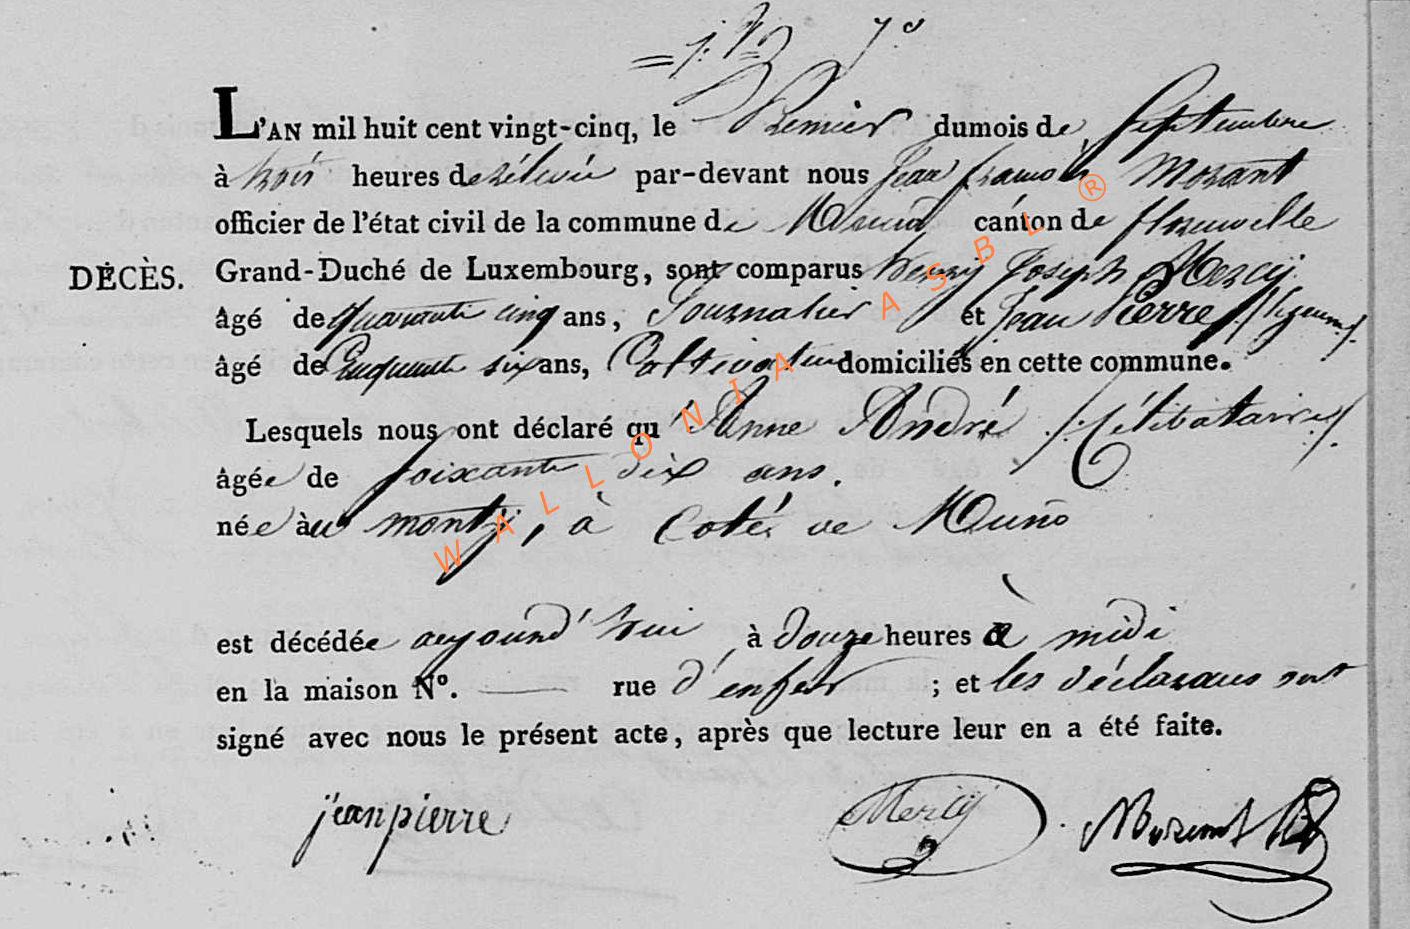 L'AN mil huit cent vingt-cinq, le Premier dumois de Septembre
à trois heures de rélevée par-devant nous Jean françois Mozant
officier de l'état civil de la commune de Muno canton de florenville
DÉCÈS. Grand-Duché de Luxembourg, sont comparus henry Joseph Mercÿ
âgé de quarante cinq ans, Journalier et Jean Pierre
âgé de Cinquante six ans, Cultivateur domiciliés en cette commune.
Lesquels nous ont déclaré qu'Anne André /:Célibataire:/
âgée de soixante dix ans.
née au montÿ, à Coté de Muno
est décédée aujourd'hui à douze heures à midi
en la maison N°. — rue d'enfer ; et les déclarans ont
signé avec nous le présent acte, après que lecture leur en a été faite.
jeanpierre Mercÿ Mozant
WALLONIA ASBL ®